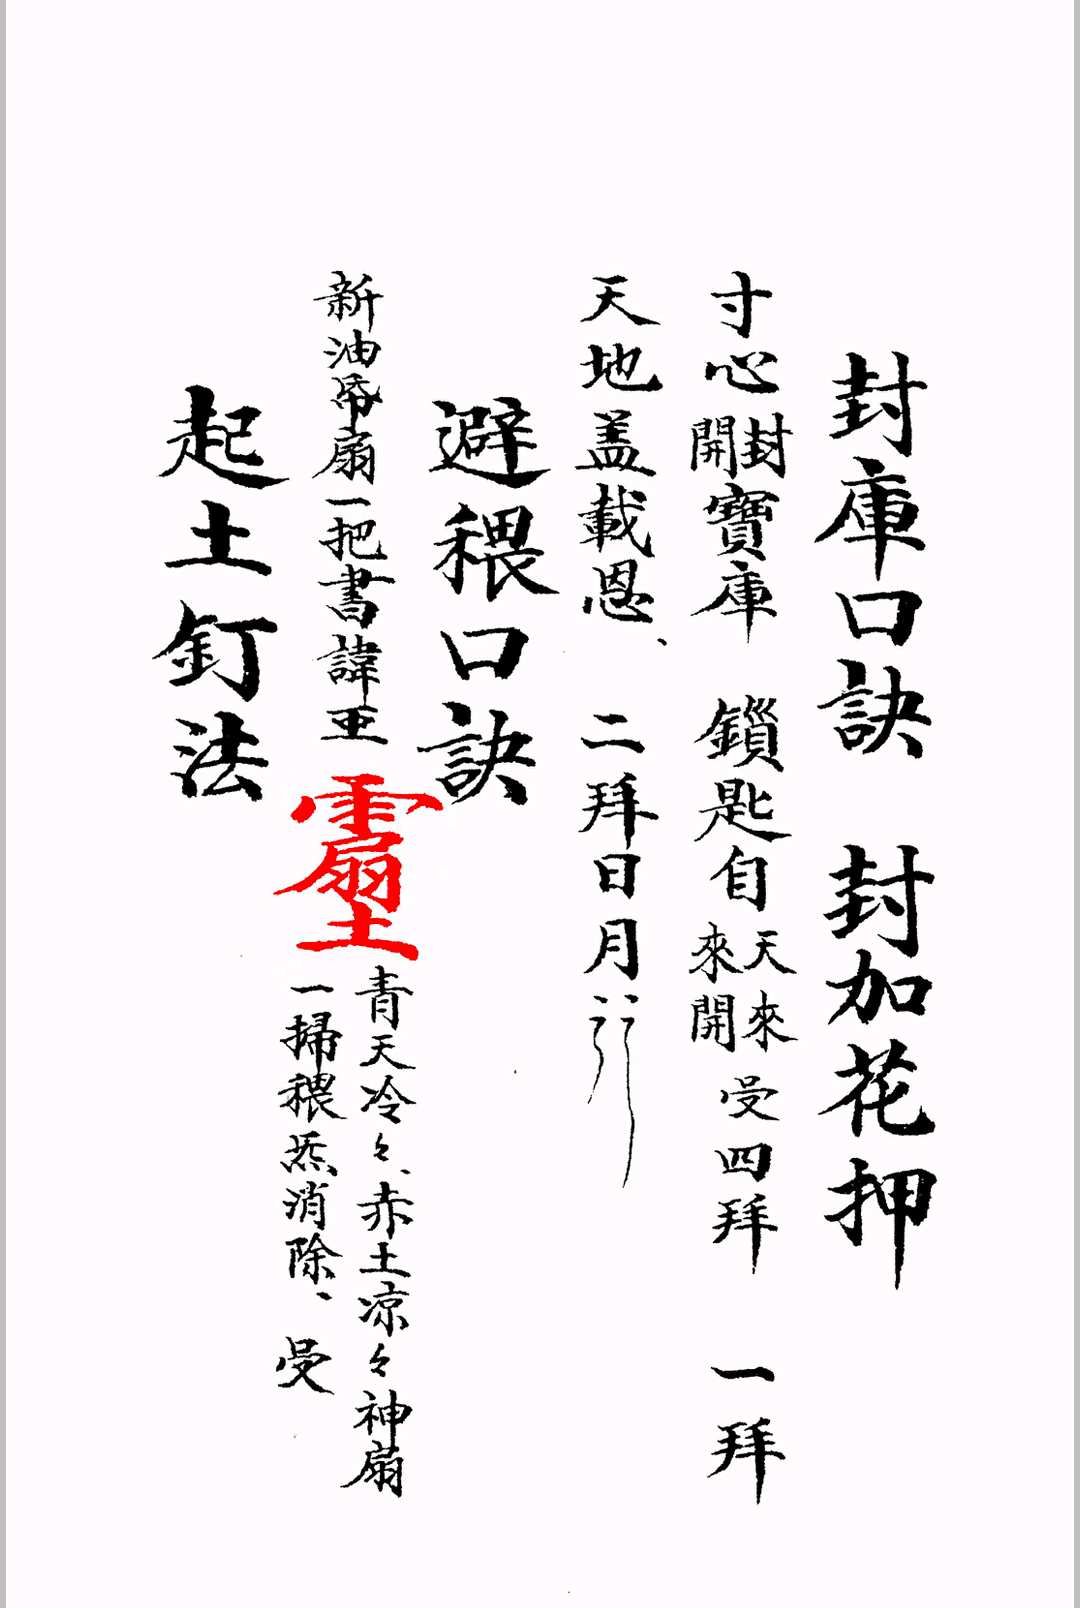 封庫口訣　封加花押
寸心封開寶庫　鎖匙自天來來開　受四拜　一拜
天地盖載恩、二拜日月
避穢口訣
新油帋扇一把書諱亚
青天冷々、赤土凉々神扇
一掃穢炁消除、受
起土釘法